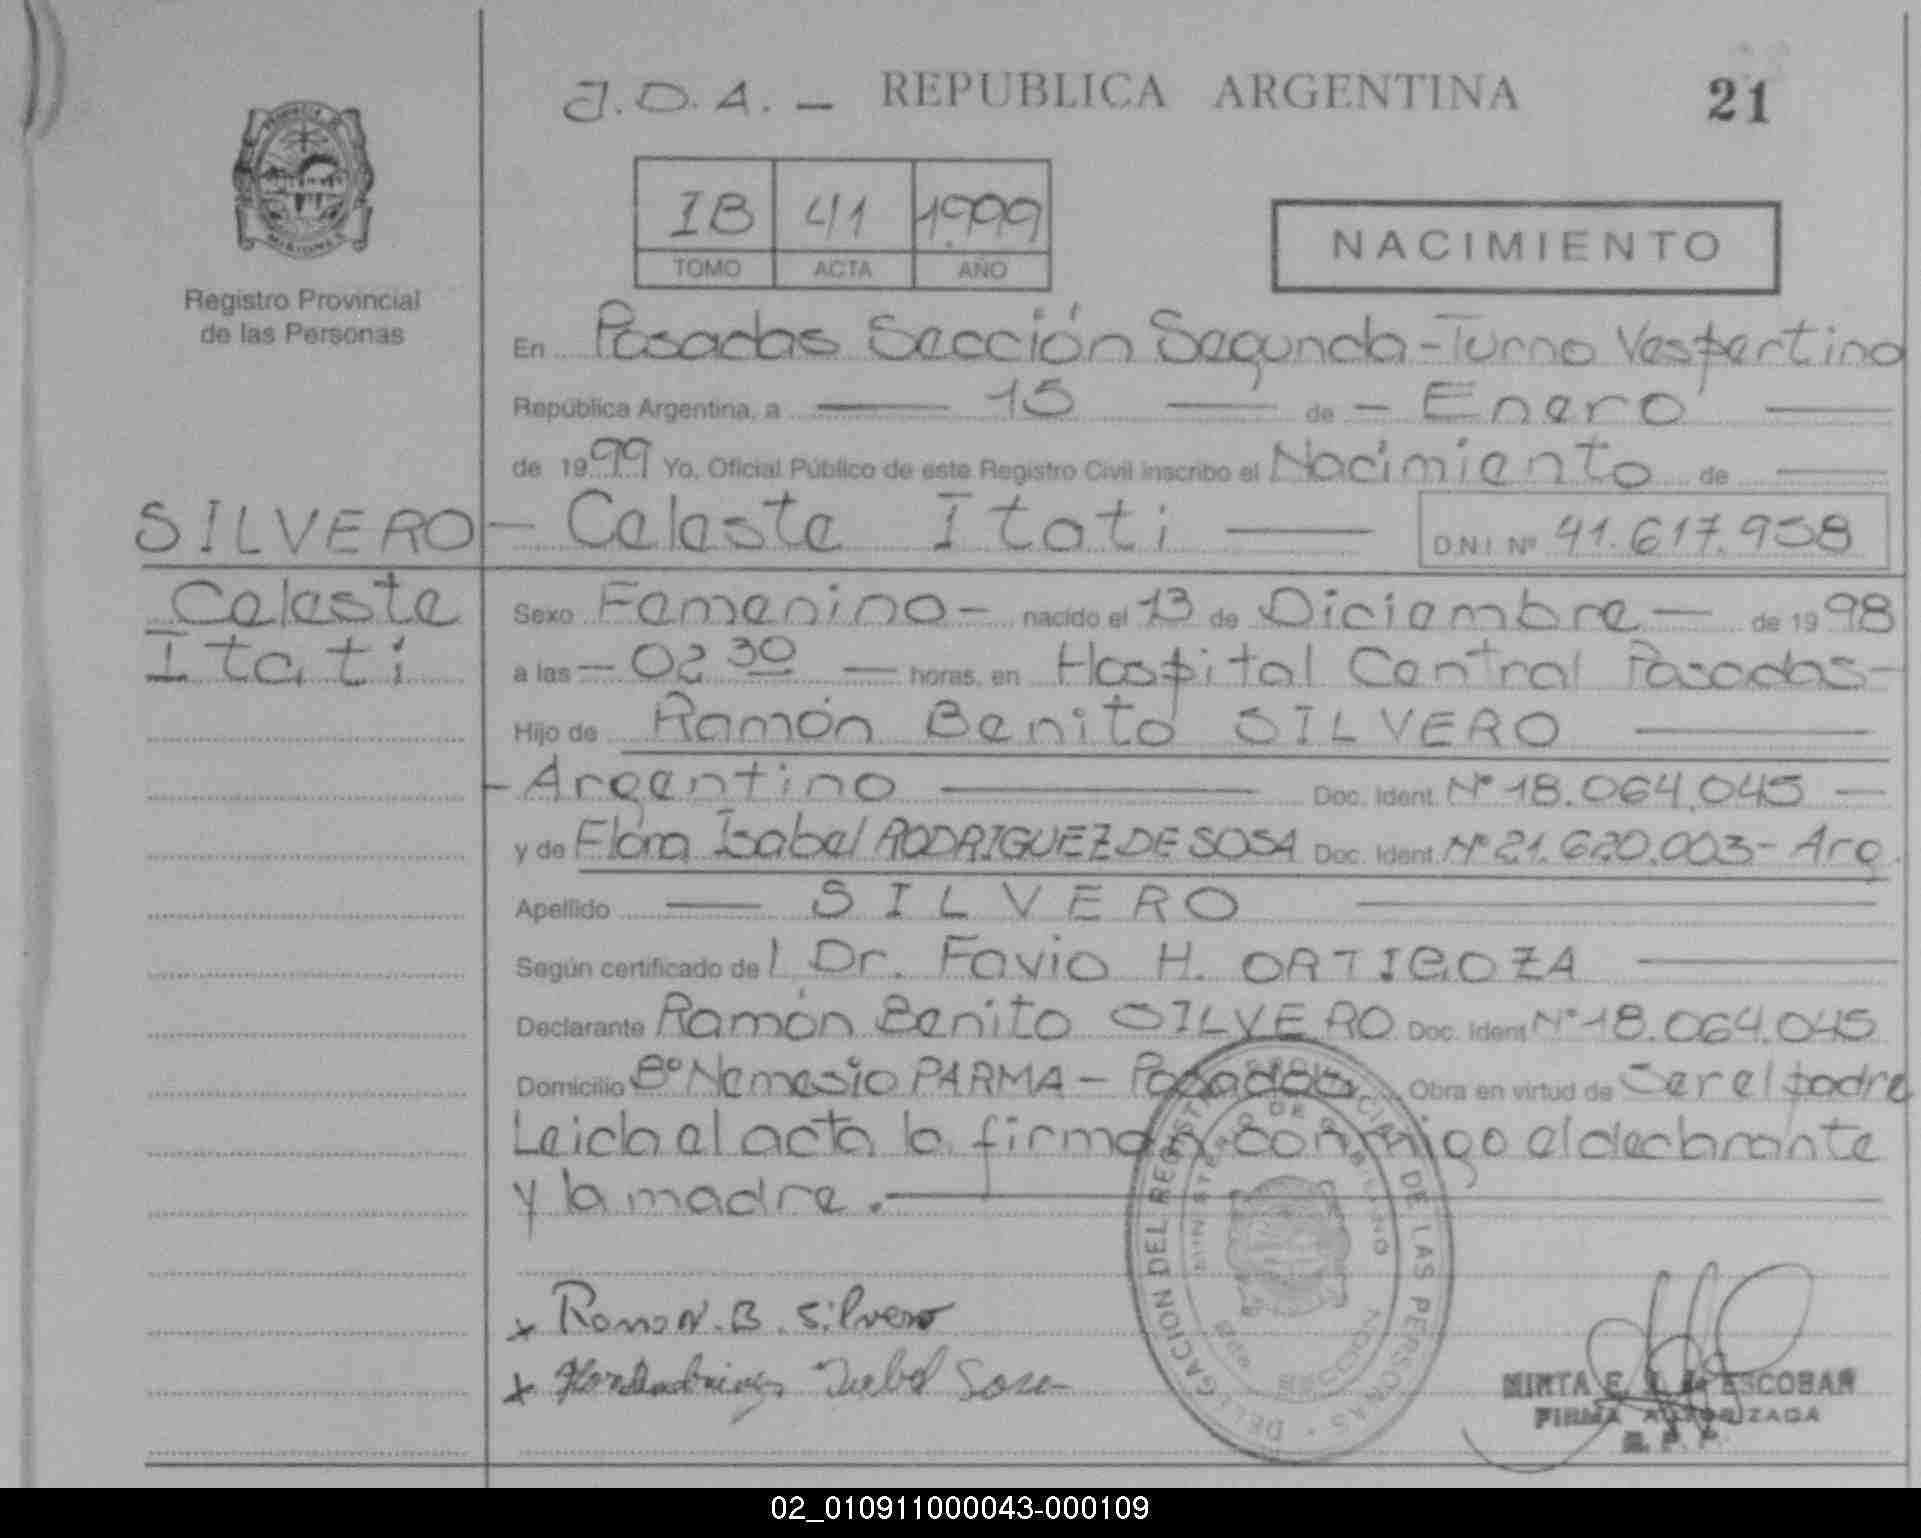 J.D.A. — REPUBLICA ARGENTINA 21
IB 41 1999
TOMO ACTA AÑO
NACIMIENTO
MISIONES
Registro Provincial
de las Personas
En Posadas Sección Segunda - Turno Vespertino
República Argentina, a — 15 — de — Enero —
de 1999 Yo, Oficial Público de este Registro Civil inscribo el Nacimiento de —
SILVERO — Celeste Itati — D.N.I. Nº 41.617.958
Celeste
Itati
Sexo Femenino — nacido el 13 de Diciembre — de 1998
a las — 02 30 — horas, en Hospital Central Posadas —
Hijo de Ramón Benito SILVERO —
- Argentino — Doc. Ident. Nº 18.064.045 —
y de Flora Isabel RODRIGUEZ DE SOSA Doc. Ident. Nº 21.620.003 - Arg.
Apellido — SILVERO —
Según certificado del Dr. Favio H. ORTIGOZA —
Declarante Ramón Benito SILVERO Doc. Ident Nº 18.064.045
Domicilio Bº Nemesio PARMA — Posadas Obra en virtud de Ser el padre
Leida el acta la firman conmigo el declarante
y la madre. —
DELEGACION DEL REGISTRO PROVINCIAL DE LAS PERSONAS
MINISTERIO DE GOBIERNO
x Ramon. B. Silvero
x Isabel Sosa
MIRTA E. ESCOBAR
FIRMA AUTORIZADA
02_010911000043-000109